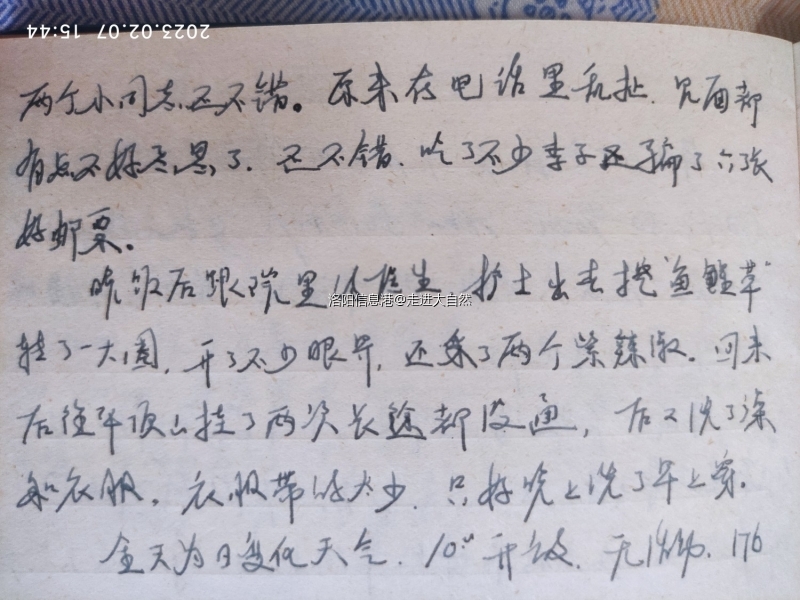 2023.02.07 15:44
两个小同志还不错。原来在电话里乱扯.见面都
有点不好意思了.还不错.吃了不少李子还骗了六张
好邮票。
晚饭后跟院里 医生 护士出去挖"鱼腥草"
转了一大圈,开了不少眼界,还采了两个紫辣椒。回来
后往平顶山挂了两次长途都没通,后又洗了澡
和衣服。衣服带的太少.只好晚上洗了早上穿.
全天为 变化天气.10 开 .无 .176
洛阳信息港@走进大自然